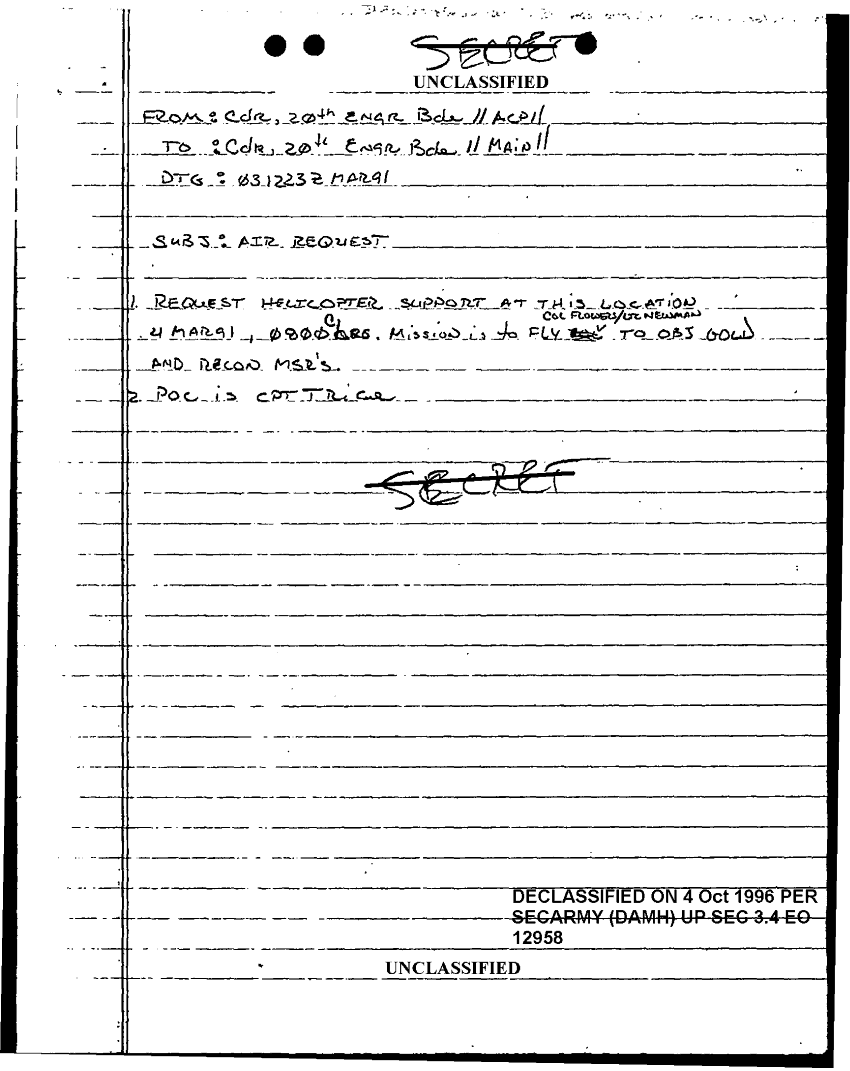 SECRET
UNCLASSIFIED
FROM: Cdr, 20th ENGR Bde // ACP//
TO : Cdr, 20th Engr Bde // MAIN//
DTG : 031223Z MAR91
SUBJ: AIR REQUEST
1. REQUEST HELICOPTER SUPPORT AT THIS LOCATION
COL FLOWERS/LTC NEWMAN
4 MAR91, 0800C HRS. Mission is to FLY TO OBJ GOLD
AND RECON MSR's.
2 POC is CPT
SECRET
DECLASSIFIED ON 4 Oct 1996 PER
SECARMY (DAMH) UP SEC 3.4 EO
12958
UNCLASSIFIED